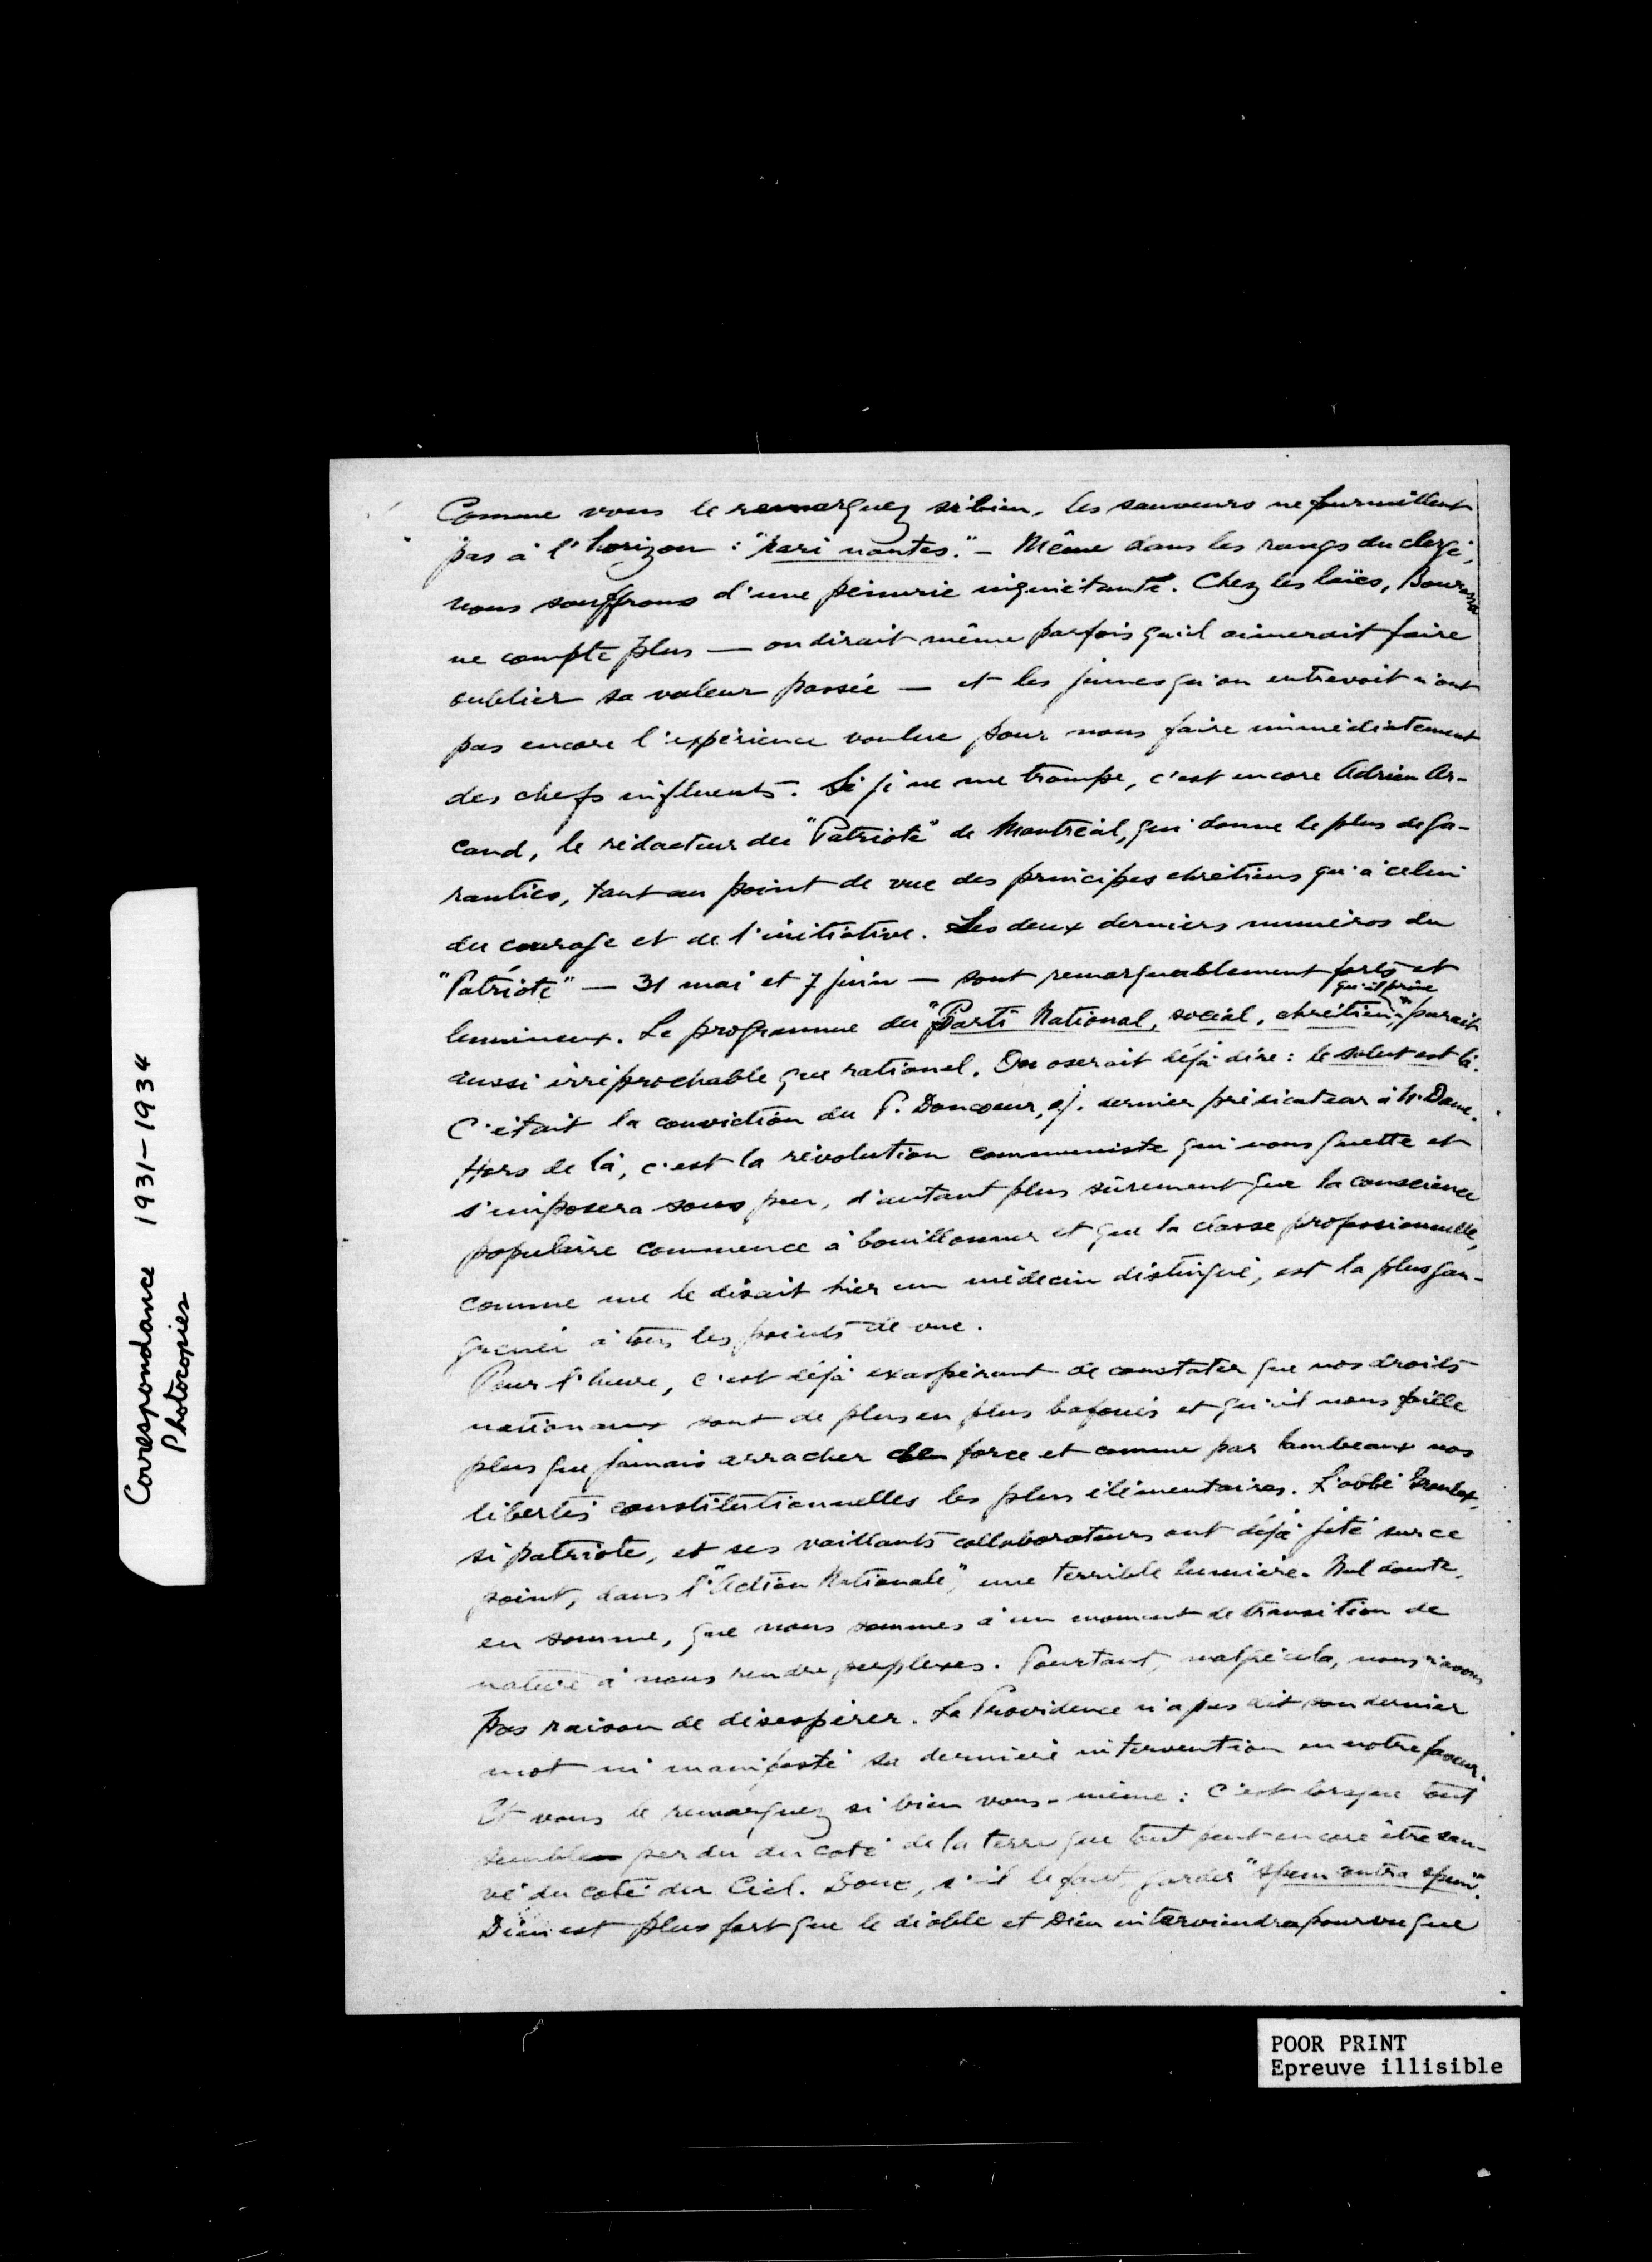 Comme vous le remarquez si bien, les sauveurs ne fourmillent
pas à l'horizon : "rari nantes." – Même dans les rangs du clergé,
nous souffrons d'une pénurie inquiétante. Chez les laïcs, Bourassa
ne compte plus — on dirait même parfois qu'il aimerait faire
oublier sa valeur passée — et les jeunes qu'on entrevoit n'ont
pas encore l'expérience voulue pour nous faire immédiatement
des chefs influents. Si je ne me trompe, c'est encore Adrien Ar-
cand, le rédacteur du "Patriote" de Montréal, qui donne le plus de ga-
ranties, tant au point de vue des principes chrétiens qu'à celui
du courage et de l'initiative. Les deux derniers numéros du
"Patriote" — 31 mai et 7 juin — sont remarquablement forts et
lumineux. Le programme du "Parti National, social, chrétien" qu'il prône, paraît
aussi irréprochable que rationel. On oserait déjà dire : le salut est là.
C'était la conviction du P. Doncoeur, s.j. dernier prédicateur à N. Dame.
Hors de là, c'est la révolution communiste qui nous guette et
s'imposera sous peu, d'autant plus sûrement que la conscience
populaire commence à bouillonner et que la classe professionnelle,
comme me le disait hier un médecin distingué, est la plus gan-
grenée à tous les points de vue.
Pour l'heure, c'est déjà exaspérant de constater que nos droits
nationaux sont de plus en plus bafoués et qu'il nous faille
plus que jamais arracher de force et comme par lambeaux nos
libertés constitutionnelles les plus élémentaires. L'abbé Groulx,
si patriote, et ses vaillants collaborateurs ont déjà jeté sur ce
point, dans l'"Action Nationale", une terrible lumière. Nul doute,
en somme, que nous sommes à un moment de transition de
nature à nous rendre perplexes. Pourtant, malgré cela, nous n'avons
pas raison de désespérer. La Providence n'a pas dit son dernier
mot ni manifesté sa dernière intervention en notre faveur.
Et vous le remarquez si bien vous-même : c'est lorsque tout
semble perdu du côté de la terre que tout peut encore être sau-
vé du côté du Ciel. Donc, s'il le faut, garder "spem contra spem".
Dieu est plus fort que le diable et Dieu interviendra pourvu que
Correspondance 1931-1934
Photocopies
POOR PRINT
Epreuve illisible